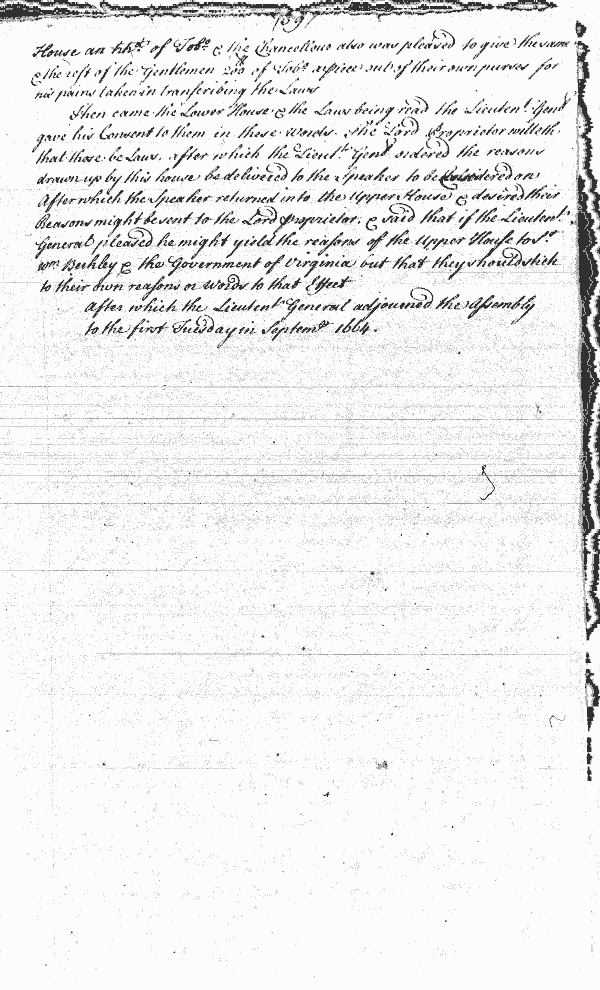 139
House an hh.d of Tob.o & the Chancellour also was pleased to give the same
& the rest of the Gentlemen 200 lb of Tob.o apiece out of their own purses for
his pains taken in transcribing the Laws
Then came the Lower House & the Laws being read the Lieuten.t Gen.l
gave his Consent to them in these words. The Lord Proprietor willeth
that those be Laws. after which the Lieut.t Gen.l ordered the reasons
drawn up by this house be delivered to the Speaker to be Considered on
After which the Speaker returned into the Upper House & desired their
Reasons might be sent to the Lord Proprietor. & said that if the Lieuten.t
General pleased he might yield the reasons of the Upper House to S.r
W.m Berkley & the Government of Virginia but that they should stick
to their own reasons or Words to that Effect
After which the Lieutent General adjourned the Assembly
to the first Tuesday in Septem.r 1664.